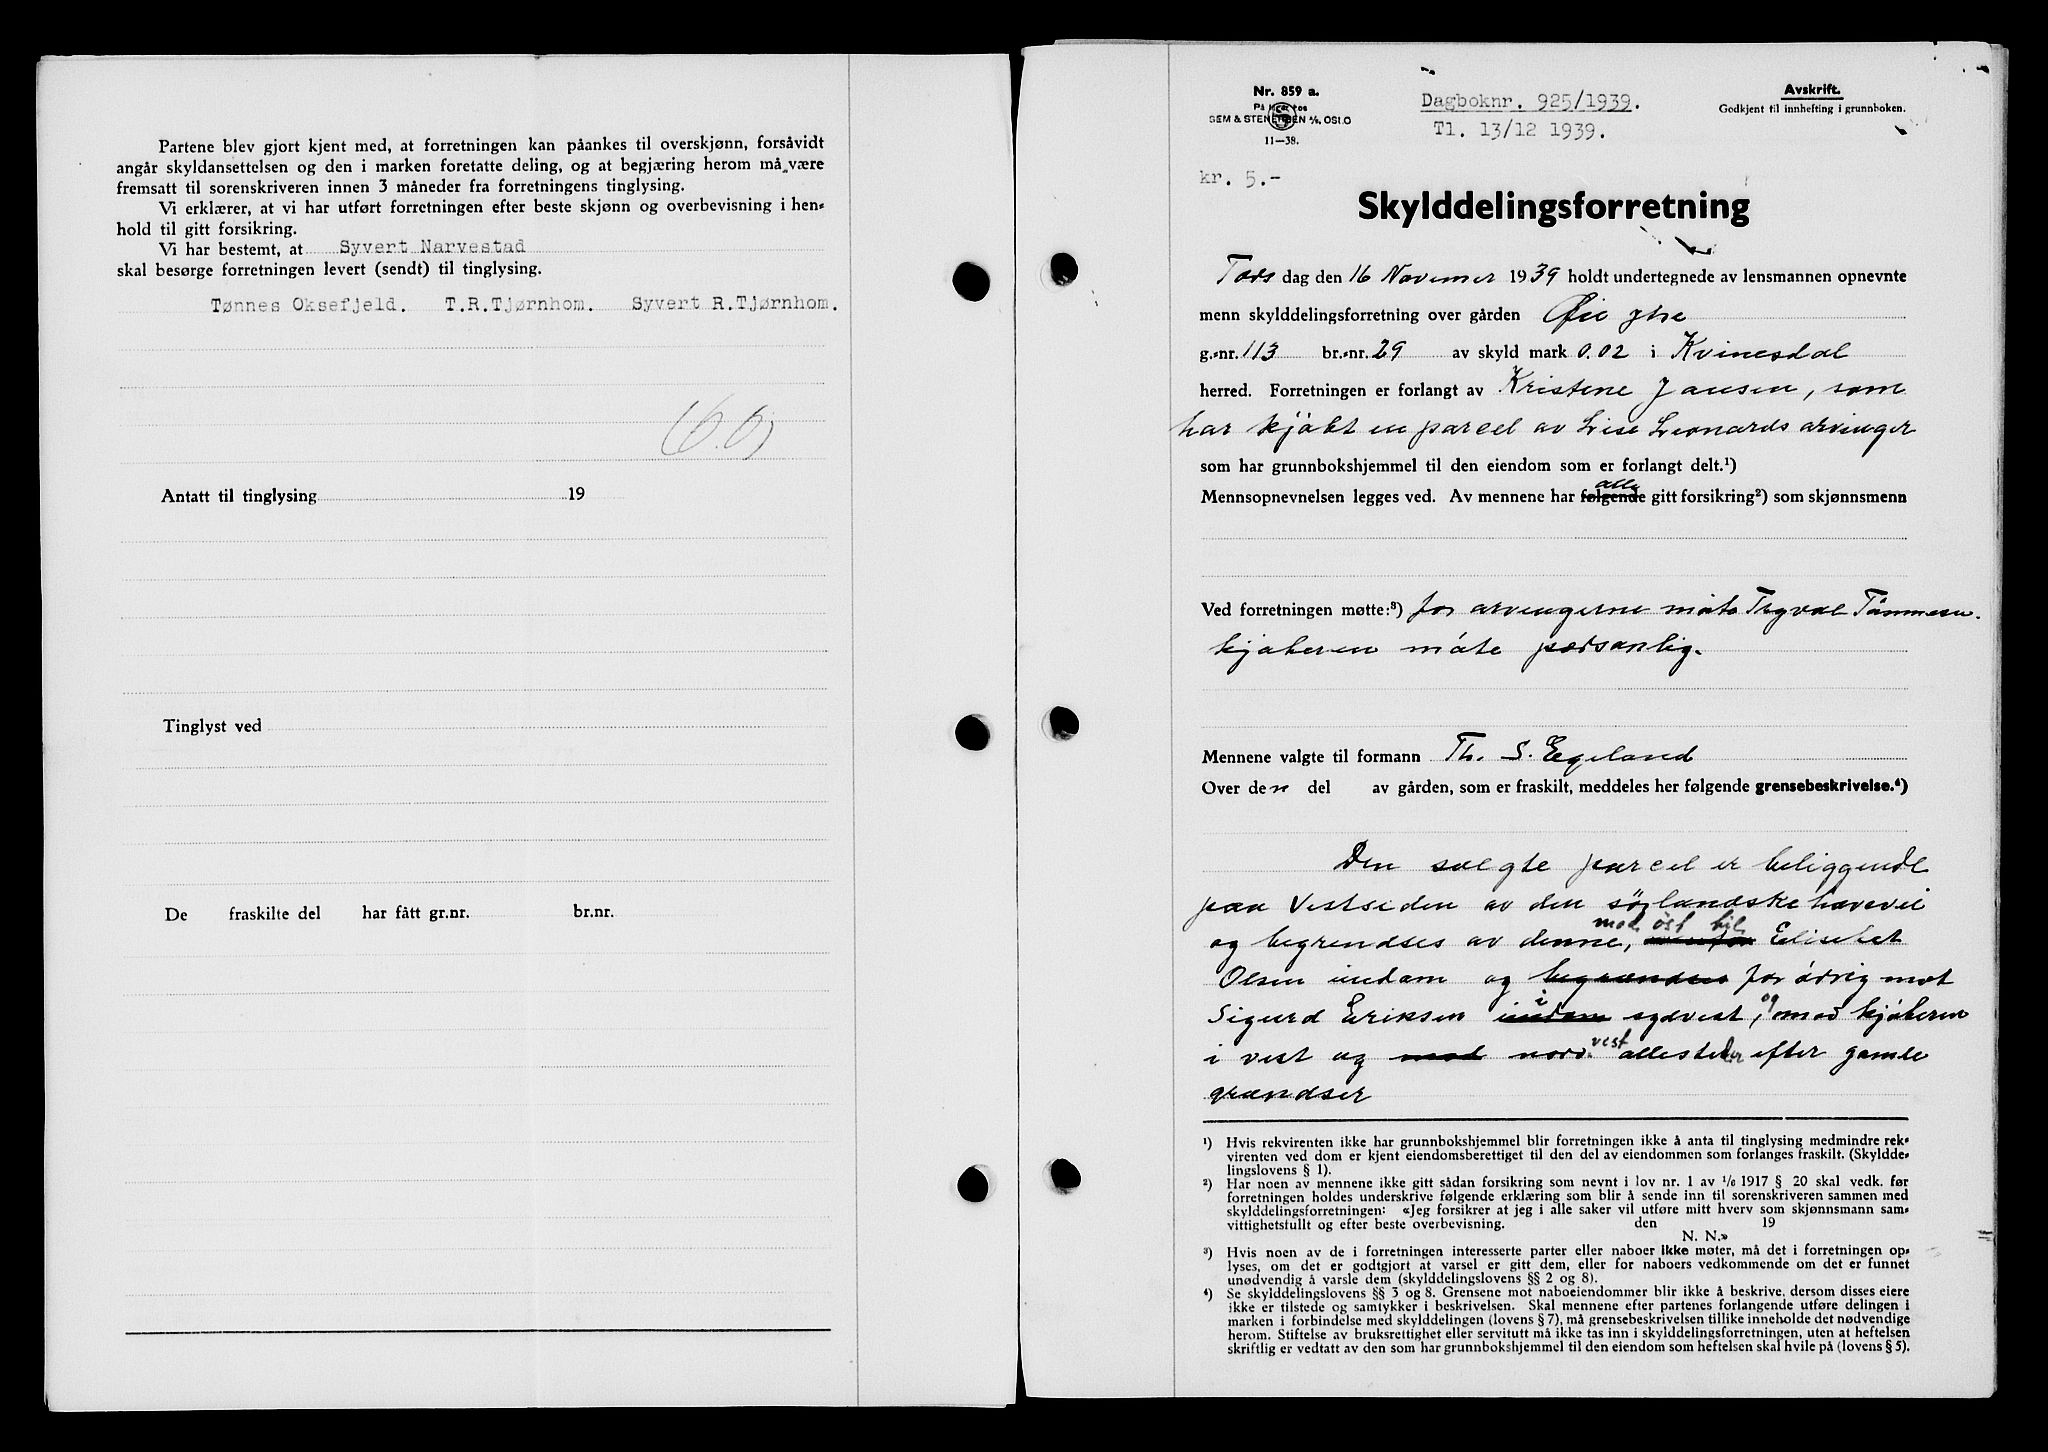 Partene blev gjort kjent med, at forretningen kan påankes til overskjønn, forsåvidt
angår skyldansettelsen og den i marken foretatte deling, og at begjæring herom må være
fremsatt til sorenskriveren innen 3 måneder fra forretningens tinglysing.
Vi erklærer, at vi har utført forretningen efter beste skjønn og overbevisning i hen-
hold til gitt forsikring.
Vi har bestemt, at Syvert Narvestad
skal besørge forretningen levert (sendt) til tinglysing.
Tønnes Oksefjeld. T.R.Tjørnhom. Syvert R.Tjørnhom.
Antatt til tinglysing 19
Tinglyst ved
De fraskilte del har fått gr.nr. br.nr.
Nr. 859 a.
SEM & STENERSEN A/S, OSLO
11—38.
Dagboknr. 925/1939.
Tl. 13/12 1939.
Avskrift.
Godkjent til innhefting i grunnboken.
kr. 5.-
Skylddelingsforretning
Tors dag den 16 Novemer 1939 holdt undertegnede av lensmannen opnevnte
menn skylddelingsforretning over gården Øie ytre
g.-nr. 113 br.-nr. 29 av skyld mark 0.02 i Kvinesdal
herred. Forretningen er forlangt av Kristine Jansen, som
har kjøbt en parcel av Lise Leonards arvinger
som har grunnbokshjemmel til den eiendom som er forlangt delt.¹)
Mennsopnevnelsen legges ved. Av mennene har følgende alle gitt forsikring²) som skjønnsmenn
Ved forretningen møtte:³) for arvingerne møte Trygve Tønnesen.
kjøberen møte personlig.
Mennene valgte til formann Th. S. Egeland
Over den del av gården, som er fraskilt, meddeles her følgende grensebeskrivelse.⁴)
Den solgte parcel er beliggende
paa Vestsiden av den sørlandske hovevei
og begrendses av denne, mod øst til Elisebet
Olsen eiendom og begrændses for øvrig mot
Sigurd Eriksen eiendom i sydvest, og mod kjøberen
i vest og mod nordvest allesteder efter gamle
grændser
¹) Hvis rekvirenten ikke har grunnbokshjemmel blir forretningen ikke å anta til tinglysing medmindre rek-
virenten ved dom er kjent eiendomsberettiget til den del av eiendommen som forlanges fraskilt. (Skyldde-
lingslovens § 1).
²) Har noen av mennene ikke gitt sådan forsikring som nevnt i lov nr. 1 av ¹/₆ 1917 § 20 skal vedk. før
forretningen holdes underskrive følgende erklæring som blir å sende inn til sorenskriveren sammen med
skylddelingsforretningen: «Jeg forsikrer at jeg i alle saker vil utføre mitt hverv som skjønnsmann sam-
vittighetsfullt og efter beste overbevisning. den 19
N. N.»
³) Hvis noen av de i forretningen interesserte parter eller naboer ikke møter, må det i forretningen op-
lyses, om det er godtgjort at varsel er gitt dem, eller for naboers vedkommende om det er funnet
unødvendig å varsle dem (skylddelingslovens §§ 2 og 8).
⁴) Se skylddelingslovens §§ 3 og 8. Grensene mot naboeiendommer blir ikke å beskrive, dersom disses eiere
ikke er tilstede og samtykker i beskrivelsen. Skal mennene efter partenes forlangende utføre delingen i
marken i forbindelse med skylddelingen (lovens § 7), må grensebeskrivelsen tillike inneholde det nødvendige
herom. Stiftelse av bruksrettighet eller servitutt må ikke tas inn i skylddelingsforretningen, uten at heftelsen
skriftlig er vedtatt av den som har grunnbokshjemmel til den eiendom som heftelsen skal hvile på (lovens § 5).